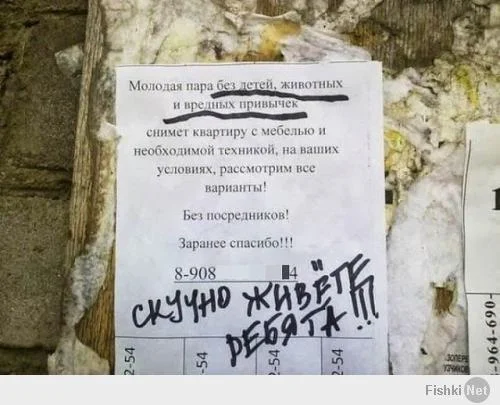 Молодая пара без детей, животных
и вредных привычек
снимет квартиру с мебелью и
необходимой техникой, на ваших
условиях, рассмотрим все
варианты!
Без посредников!
Заранее спасибо!!!
8-908 4
СКУЧНО ЖИВЁТЕ
РЕБЯТА!!!
2-54
2-54
2-54
2-54
2-54
-964-690-
Fishki Net